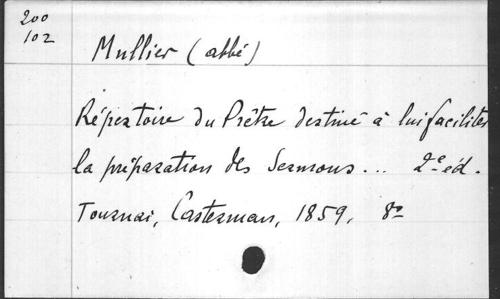 200
102
Mullier (abbé)
Répertoire du Prêtre destiné à lui faciliter
la préparation des Sermons... 2e éd.
Tournai, Casterman, 1859, 8o